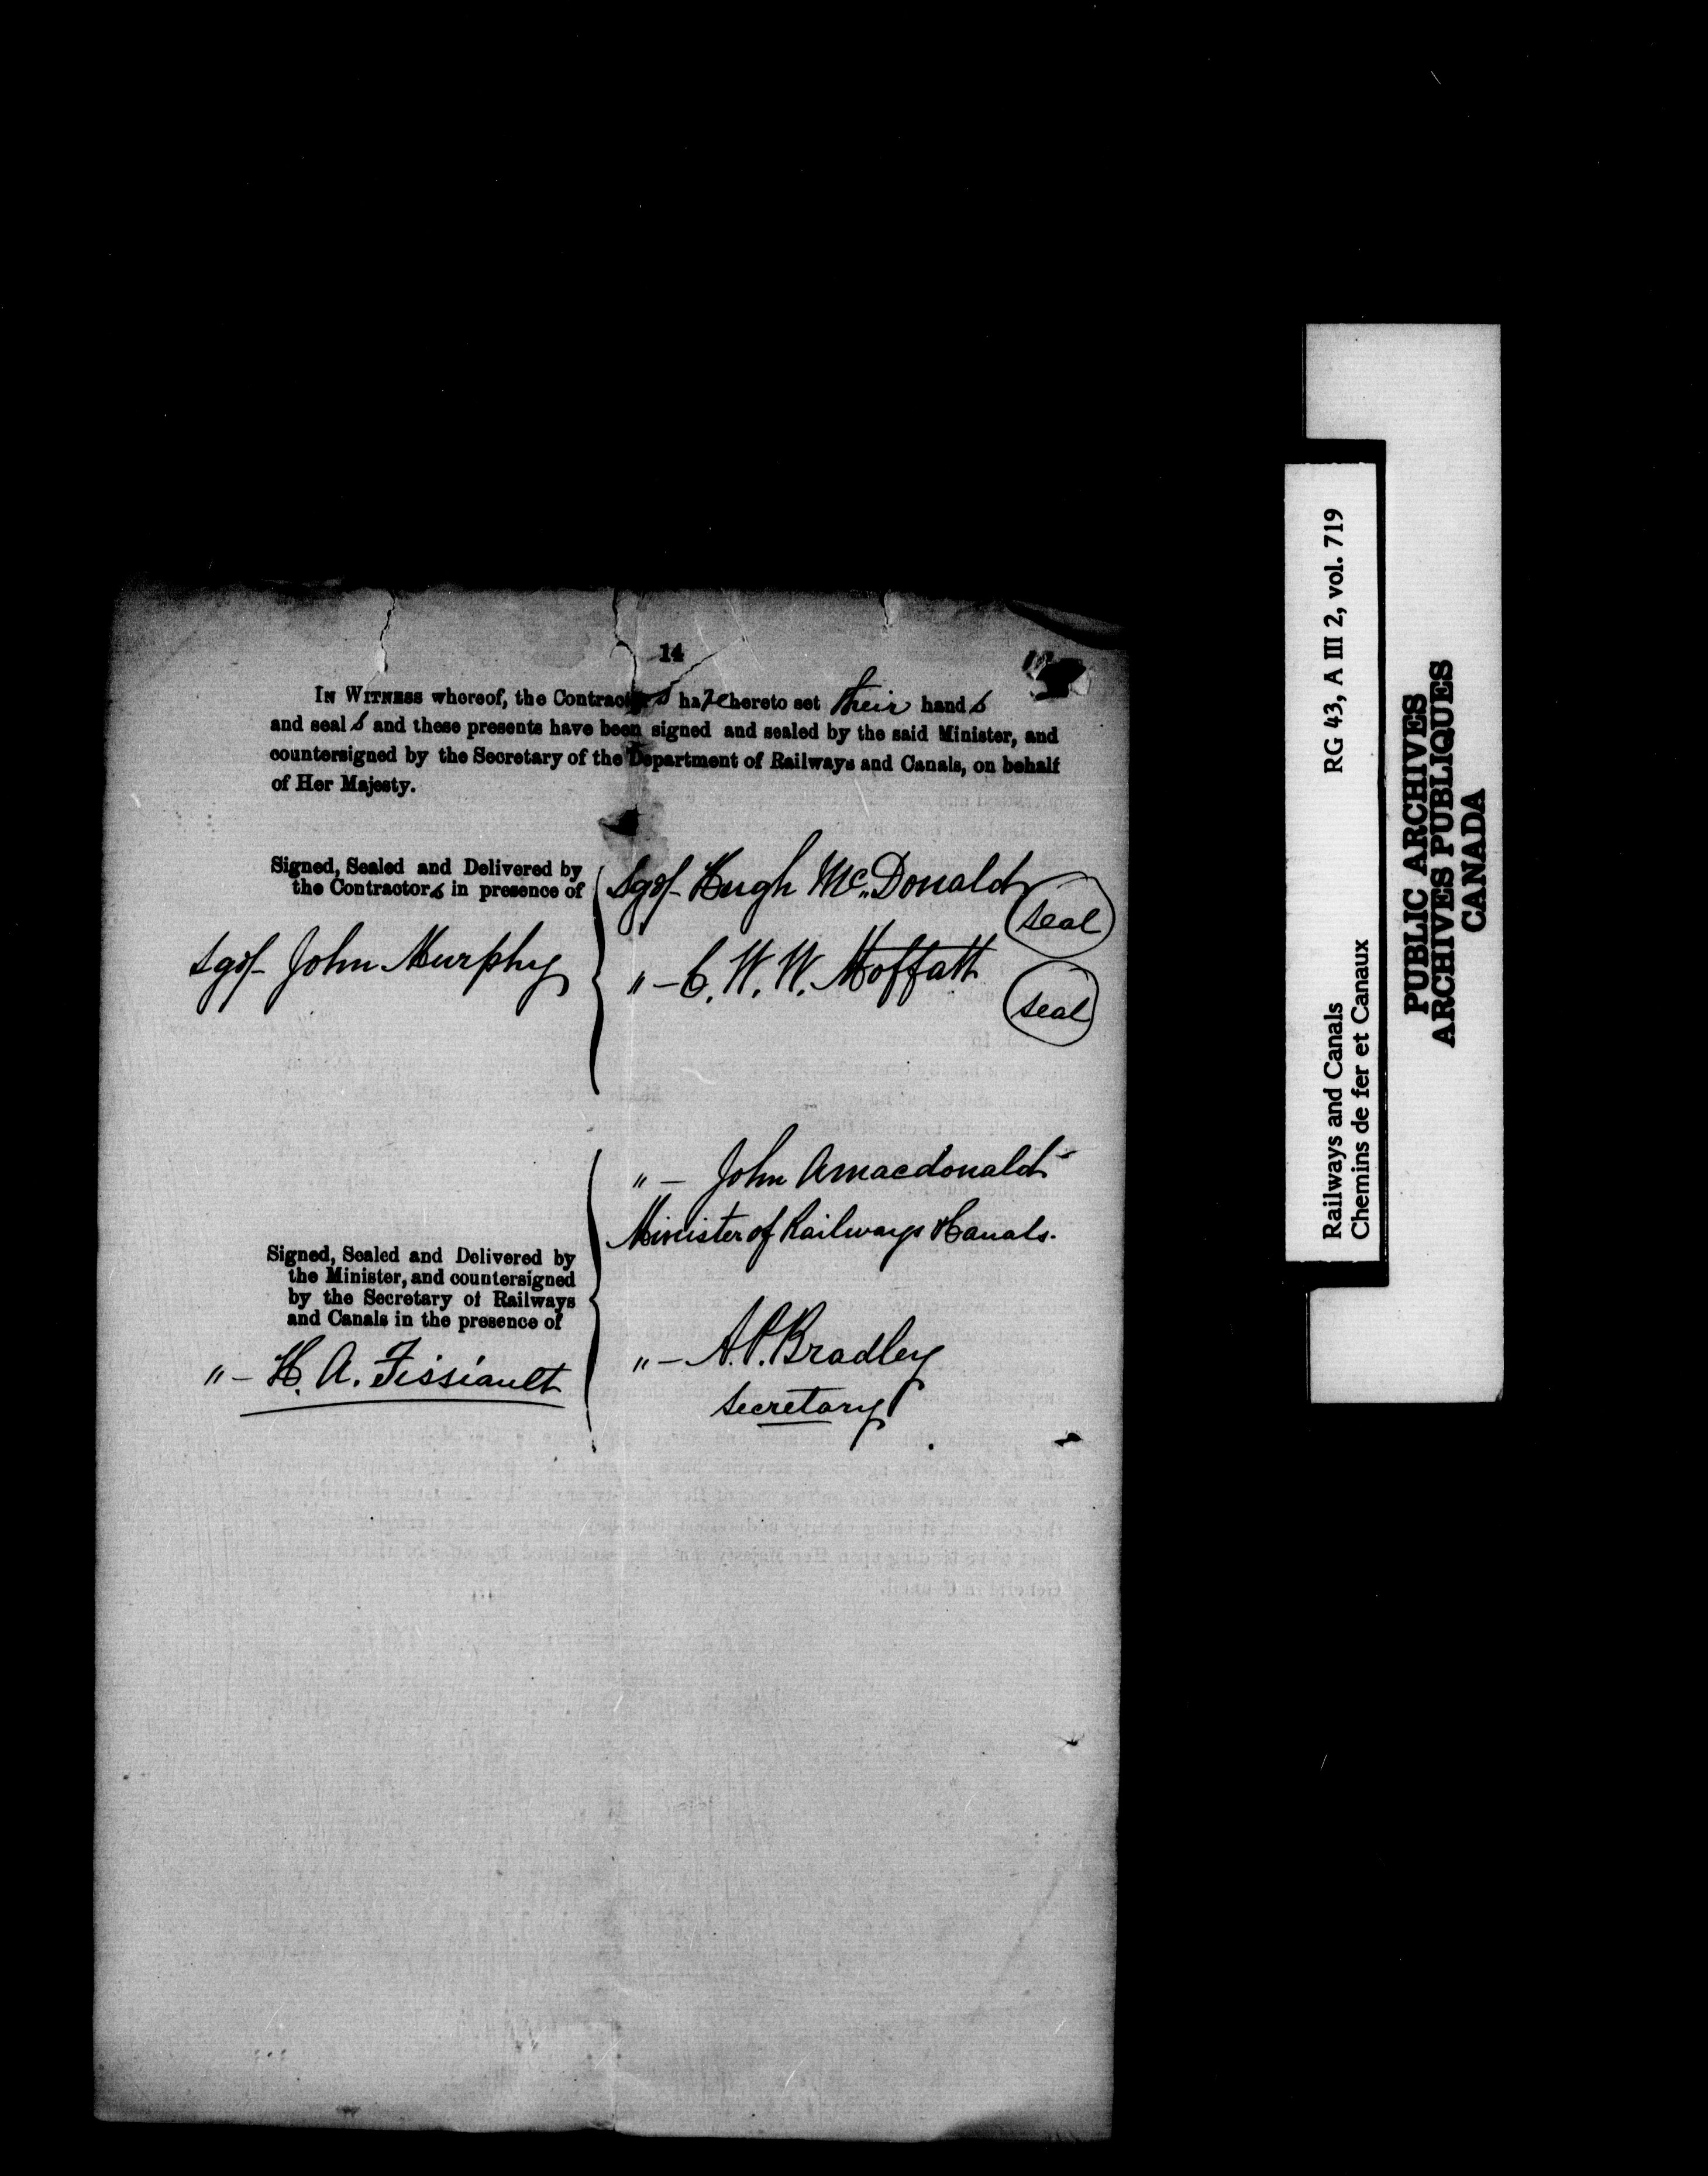 14
IN WITNESS whereof, the Contractors have hereto set their hands
and seals and these presents have been signed and sealed by the said Minister, and
countersigned by the Secretary of the Department of Railways and Canals, on behalf
of Her Majesty.
Signed, Sealed and Delivered by
the Contractors in presence of
sgd/- John Murphy
sgd/- Hugh McDonald
seal
" - C. W. W. Moffatt
seal
" - John A Macdonald
Minister of Railways & Canals.
Signed, Sealed and Delivered by
the Minister, and countersigned
by the Secretary of Railways
and Canals in the presence of
" - H. A. Fissiault
" - A. P. Bradley
Secretary
Railways and Canals RG 43, A III 2, vol. 719
Chemins de fer et Canaux
PUBLIC ARCHIVES
ARCHIVES PUBLIQUES
CANADA